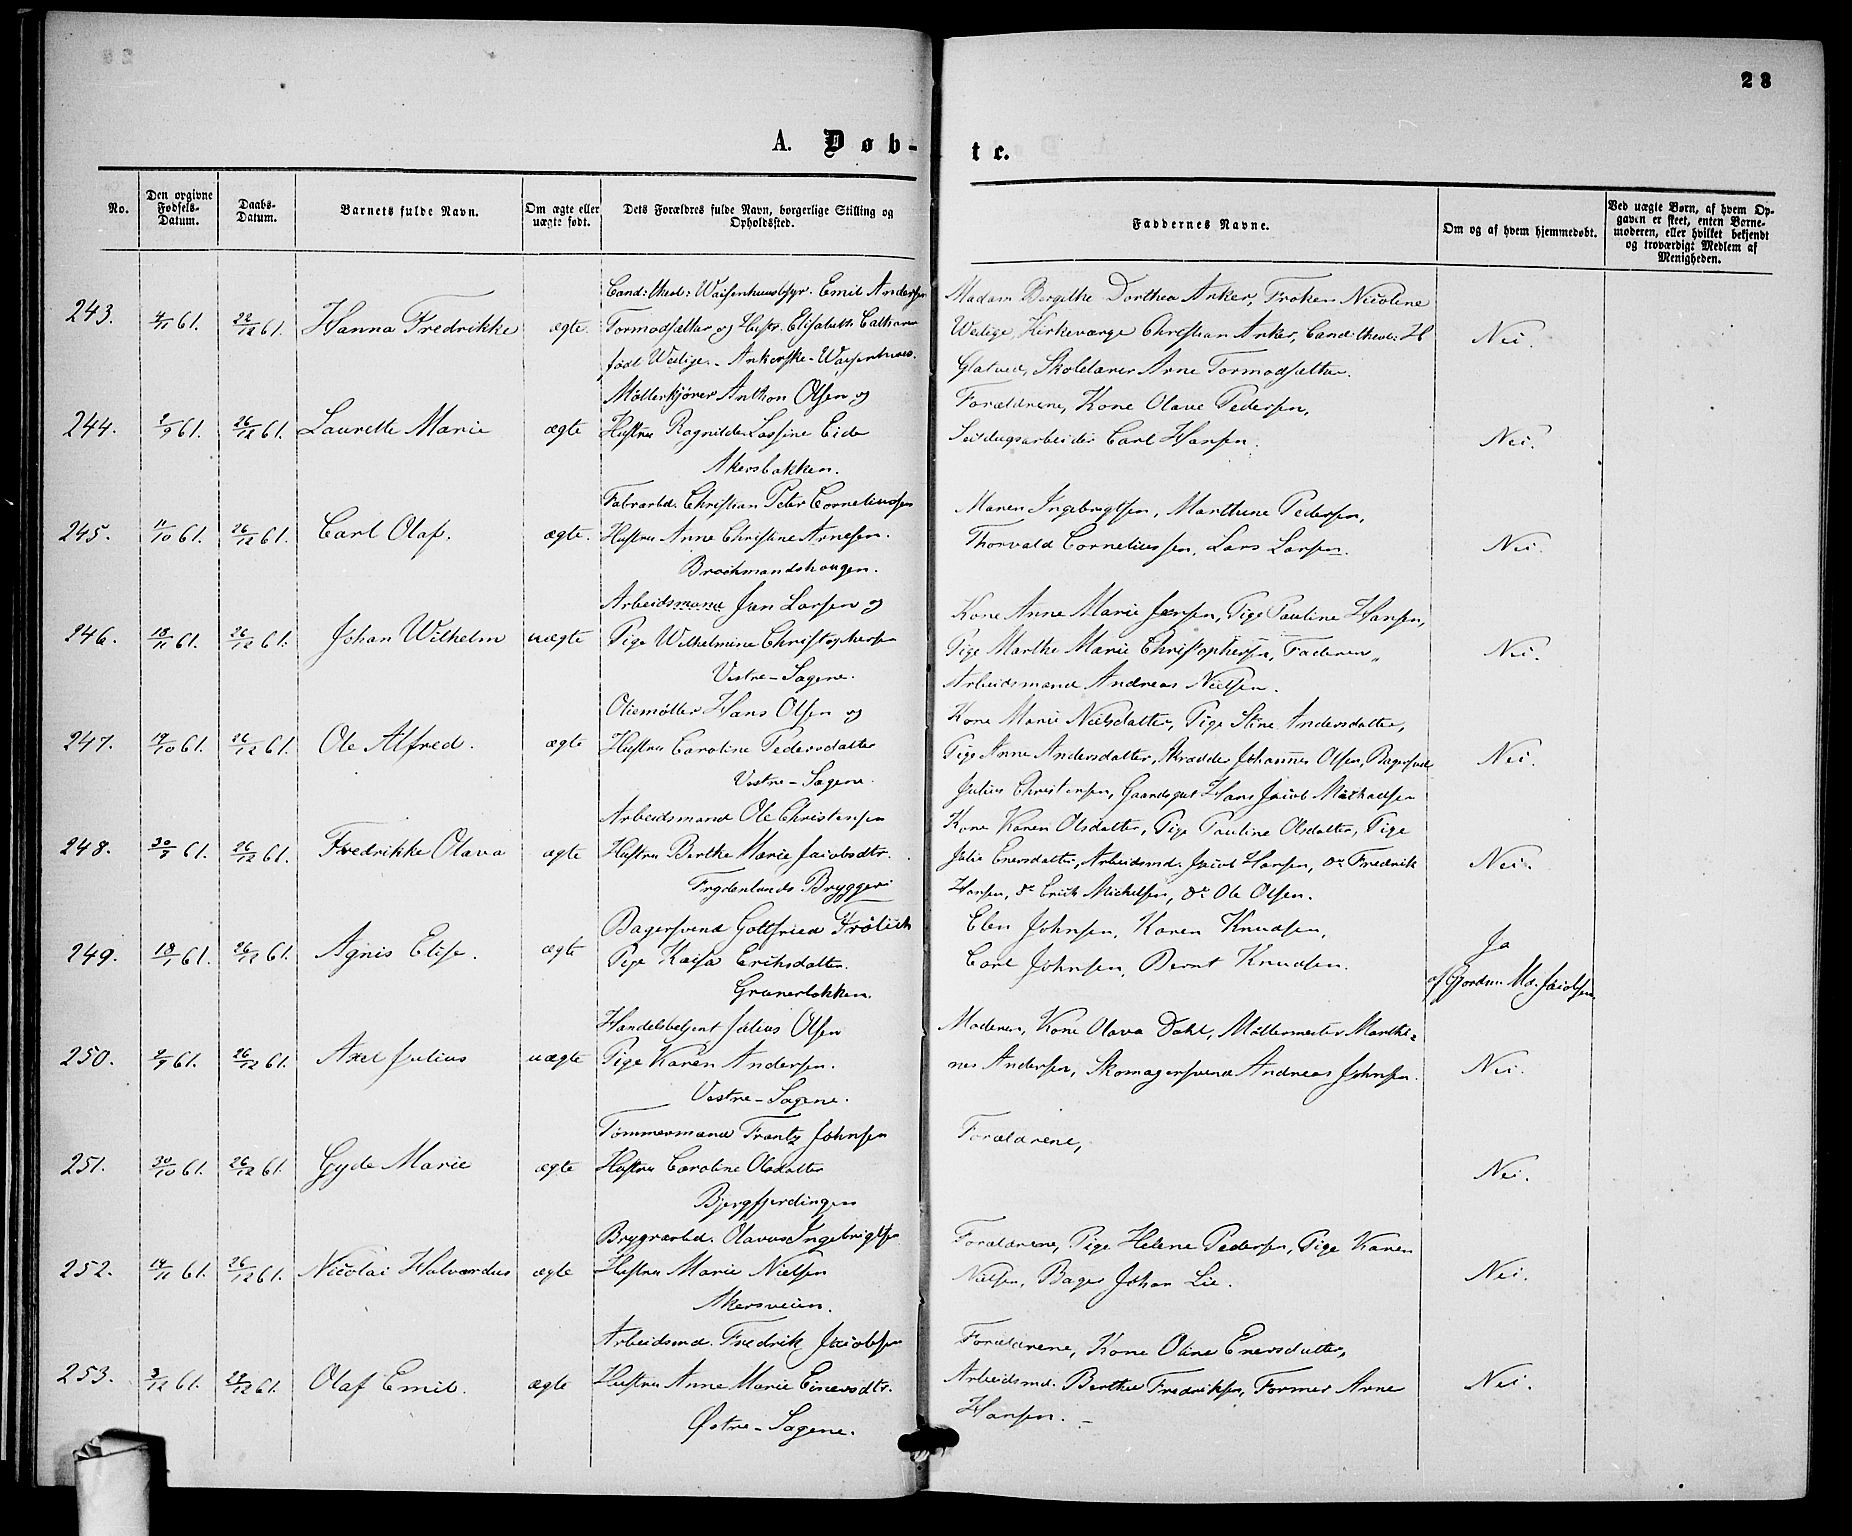 28
A. Døb-
te.
No.
Den opgivne Fødsels-Datum.
Daabs-Datum.
Barnets fulde Navn.
Om ægte eller uægte født.
Dets Forældres fulde Navn, borgerlige Stilling og Opholdssted.
Faddernes Navne.
Om og af hvem hjemmedøbt.
Ved uægte Børn, af hvem Opgaven er skeet, enten Barnemoderen, eller hvilket bekjendt og troværdigt Medlem af Menigheden.
Cand: theol: Waisenhuusbstyr. Emil Andersen
243. 4/11 61. 22/12 61. Hanna Fredrikke ægte Tormodsætter og Hustr. Elisabeth Cathrine
født Weilige. - Ankerske - Waisenhuus.
Madam Bergithe Dorthea Anker, Frøken Nicoline
Weilige, Kirkeværge Christian Anker, Cand: theol: H
Nei.
Glatved, Skolelærer Arne Tormodsætter.
Møllerkjører Anthon Olsen og
244. 2/9 61. 26/12 61. Laurette Marie ægte Hustru Ragnilde Lassine Eide
Akersbakken.
Forældrene, Kone Olave Pedersen,
Seildugsarbeider Carl Hansen.
Nei.
Fabrarbd. Christian Peter Corneliussen
245. 11/10 61. 26/12 61. Carl Olaf. ægte. Hustru Anne Christine Arnesen.
Brochmandshougen.
Maren Ingebrigtsen, Marthine Pedersen,
Thorvald Corneliussen, Lars Larsen.
Nei.
Arbeidsmand Jan Larsen og
246. 18/11 61. 26/12 61. Johan Wilhelm uægte Pige Wilhelmine Christophersen
Vestre-Sagene.
Kone Anne Marie Jensen, Pige Pauline Hansen,
Pige Marthe Marie Christophersen, Faderen,
Nei.
Arbeidsmand Andreas Nielsen.
Oliemøller Hans Olsen og
247. 19/10 61. 26/12 61. Ole Alfred. ægte Hustru Caroline Pedersdatter
Vestre-Sagene.
Kone Marie Nielsdatter, Pige Stine Andersdatter,
Pige Anne Andersdatter, Skrædder Johannes Olsen, Bagersvd
Nei.
Julius Christensen, Gaardsgut Hans Jacob Michaelsen
Arbeidsmand Ole Christensen
248. 30/9 61. 26/12 61. Fredrikke Olava ægte Hustru Berthe Marie Jacobsdtr.
Frydenlunds Bryggeri
Kone Karen Olsdatter, Pige Pauline Olsdatter, Pige
Julie Enersdatter, Arbeidsmd. Jacob Hansen, do Fredrik
Nei.
Hansen, do Erik Michelsen, do Ole Olsen.
Bagersvend Gottfried Frölich
249. 18/1 61. 26/12 61. Agnis Elise. ægte Pige Kaisa Eriksdatter.
Grünerløkken.
Elen Johnsen, Karen Knudsen,
Carl Johnsen, Bernt Knudsen.
Ja
af Gjordm. Md. Jacobsen.
Handelsbetjent Julius Olsen
250. 2/9 61. 26/12 61. Axel Julius uægte Pige Karen Andersen.
Vestre-Sagene.
Moderen, Kone Olava Dahl, Møllermester Marthi-
nes Andersen, Skomagersvend Andreas Johnsen.
Nei.
Tømmermand Frantz Johnsen
251. 30/10 61. 26/12 61. Gyda Marie ægte Hustru Caroline Olsdatter
Bjergfjerdingen
Forældrene,
Nei.
Brygrarbd. Olavus Ingebrigtsen
252. 14/11 61. 26/12 61. Nicolai Halvardus ægte Hustru Marie Nielsen
Akersveien.
Forældrene, Pige Helene Pedersen, Pige Karen
Nielsen, Bager Johan Lie.
Nei.
Arbeidsmd. Fredrik Jacobsen
253. 3/12 61. 29/12 61. Olaf Emil. ægte Hustru Anne Marie Einersdtr.
Østre-Sagene.
Forældrene, Kone Oline Enersdatter,
Arbeidsmd. Berthe Fredriksen, Former Arne
Nei.
Hansen. -